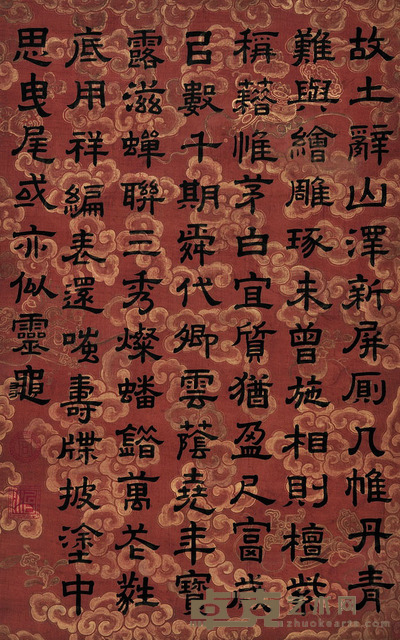 故土辭山澤新屏廁几帷丹青
難與繪雕琢未曾施相則檀紫
稱藉惟茅白宜質猶盈尺富歲
已數千期舜代卿雲蔭堯年寶
露滋蟬聯三秀燦蟠錯萬花蕤
底用祥編表還嗤壽牒披塗中
思曳尾或亦似靈龜
卓克艺术网
zhuokearts.com